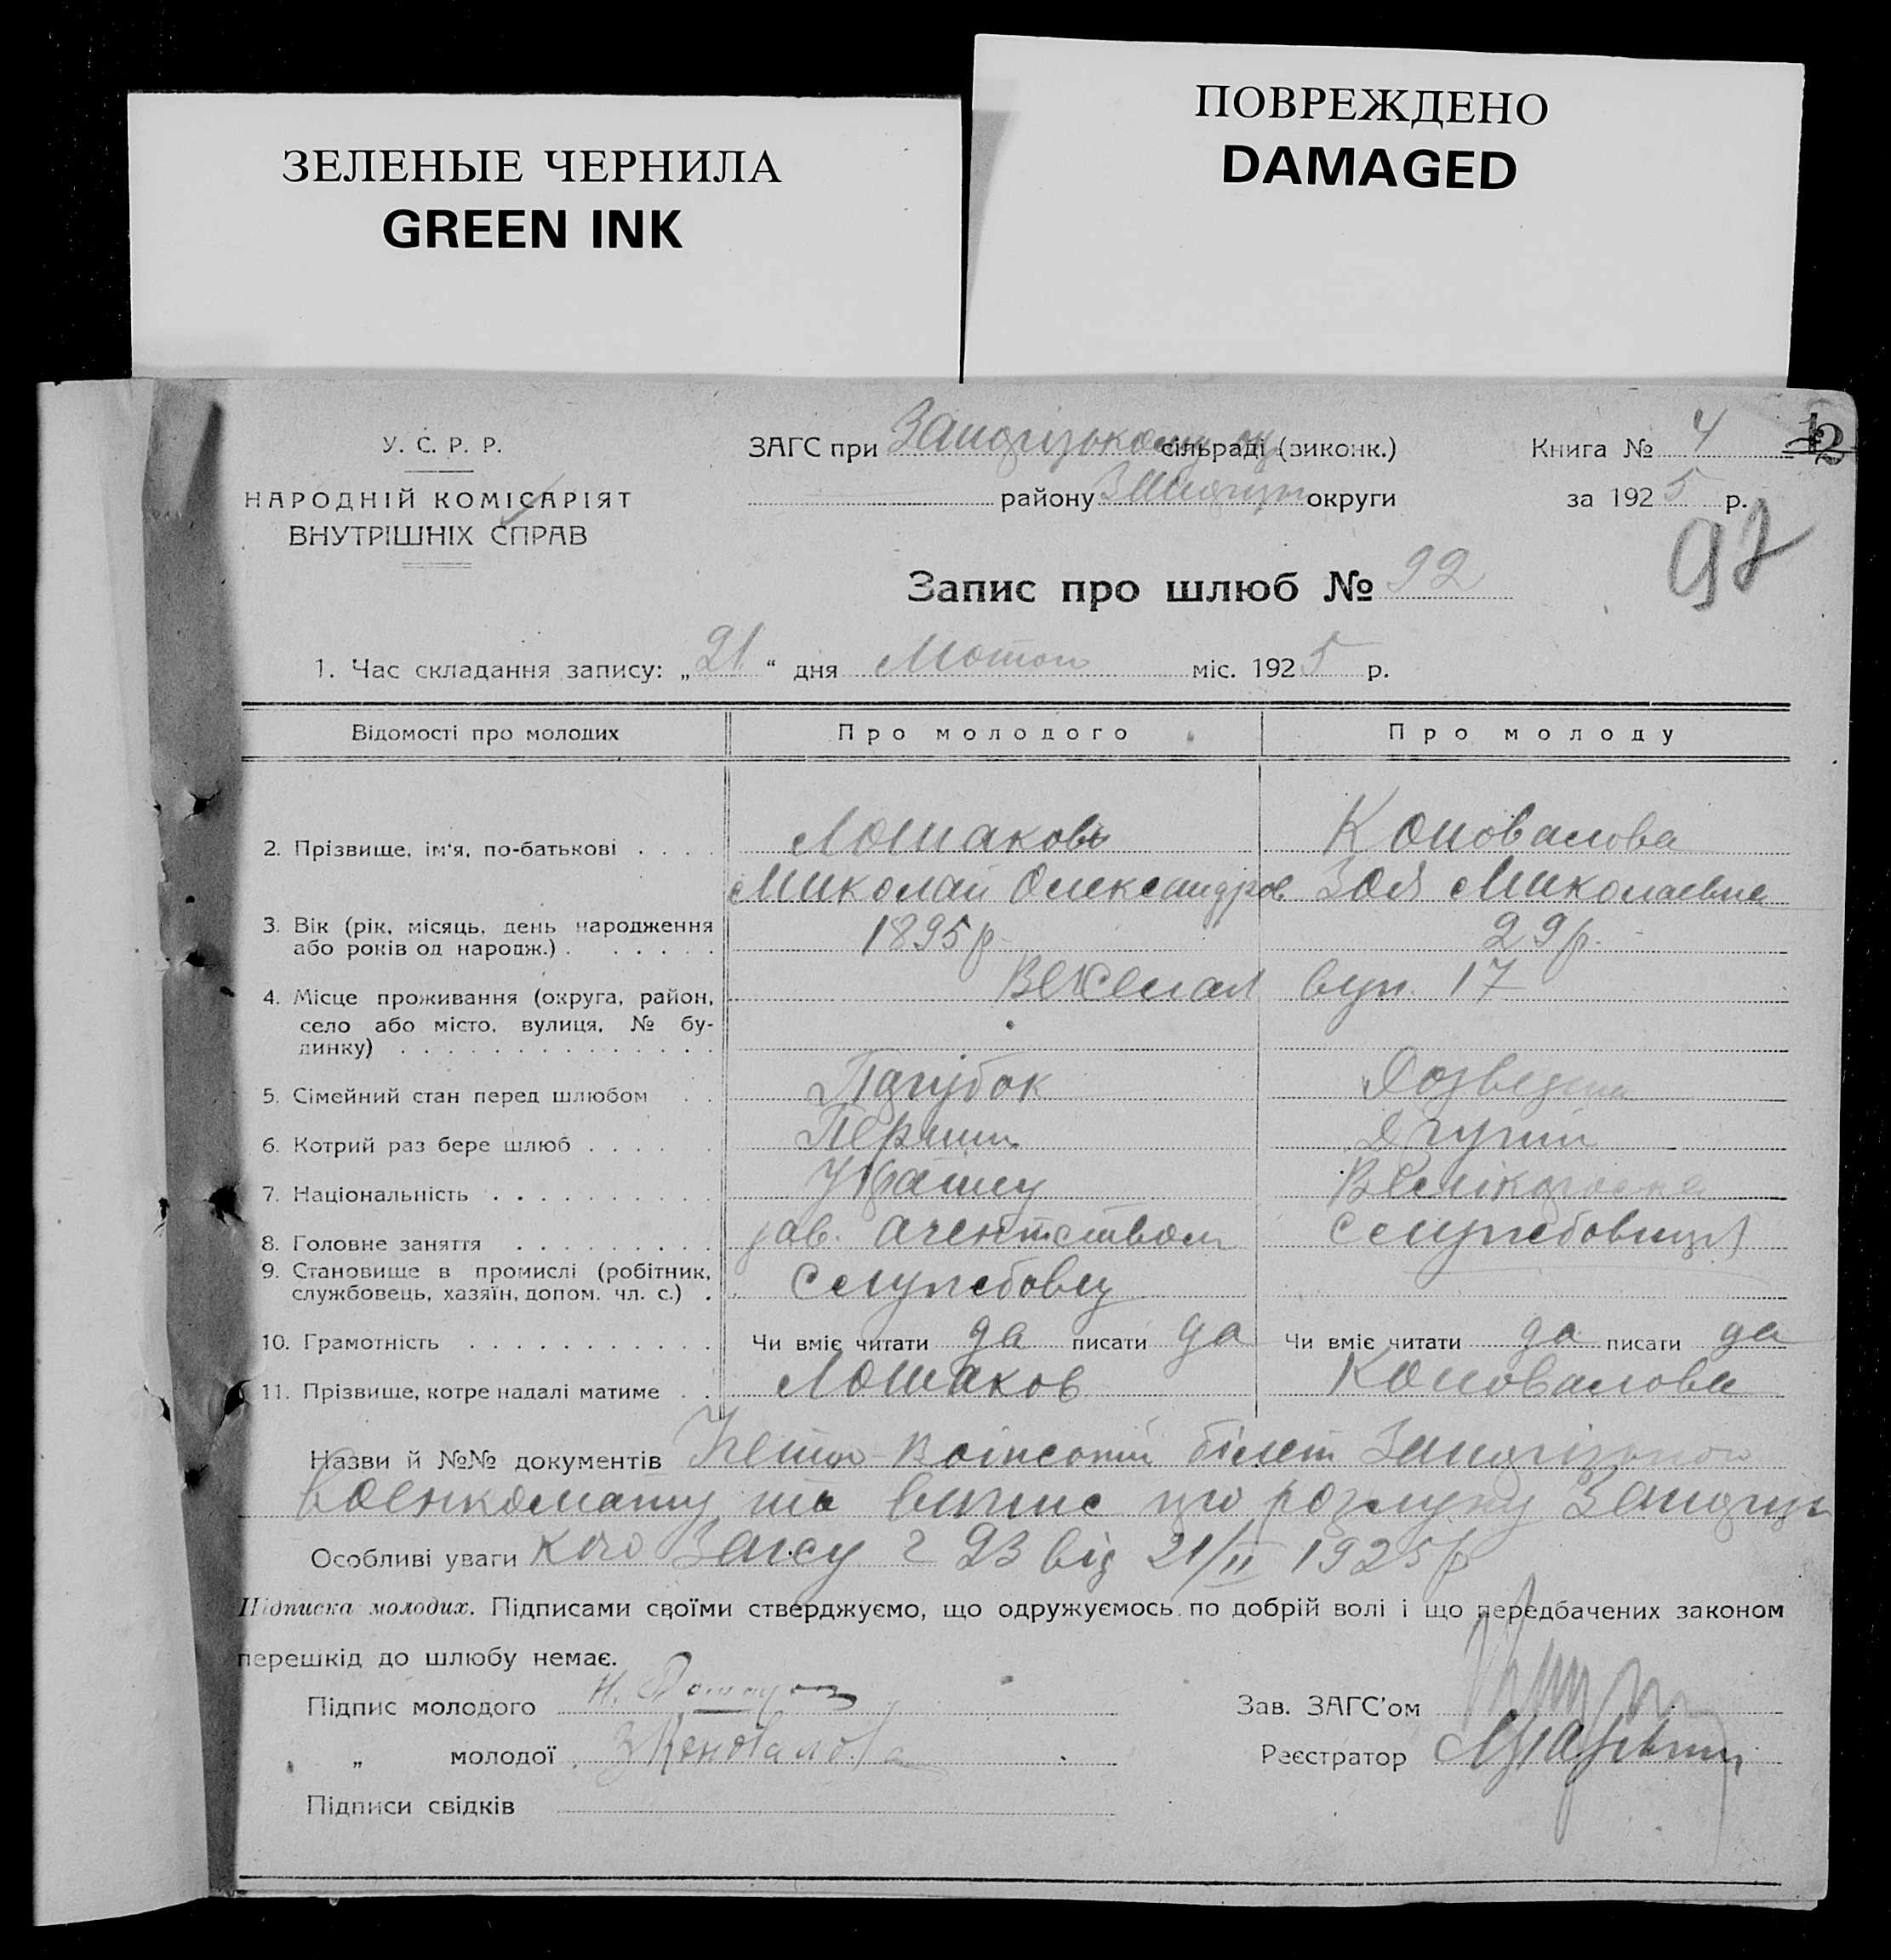 ЗЕЛЕНЫЕ ЧЕРНИЛА
GREEN INK
ПОВРЕЖДЕНО
DAMAGED
У. С. Р. Р.
НАРОДНІЙ КОМІСАРІЯТ
ВНУТРІШНІХ СПРАВ
ЗАГС при сільраді (виконк.)
району округи
Книга № 4
за 1925 р.
12
Запис про шлюб № 92
1. Час складання запису: „21“ дня Лютого міс. 1925 р.
Відомості про молодих Про молодого Про молоду
2. Прізвище, ім'я, по-батькові . . . . Лошаков Коновалова
Миколай Олександров Зоя Миколаевна
3. Вік (рік, місяць, день народження
або років од народж.) . . . . . . 1895 р 29 р.
4. Місце проживання (округа, район, вул. 17
село або місто, вулиця, № бу-
динку) . . . . . . . . . . . . . .
5. Сімейний стан перед шлюбом . . Парубок Розведена
6. Котрий раз бере шлюб . . . . . Перший Другий
7. Національність . . . . . . . . . .
8. Головне заняття . . . . . . . . . зав. агентством Службовиця
9. Становище в промислі (робітник,
службовець, хазяїн, допом. чл. с.) . Службовец
10. Грамотність . . . . . . . . . . . Чи вміє читати да писати да Чи вміє читати да писати да
11. Прізвище, котре надалі матиме . . Лошаков Коновалова
Назви й №№ документів білет
Военкомату та випис про розлуку
Особливі уваги кого Загсу 23 від 21/II 1925 р
Підписка молодих. Підписами своїми стверджуємо, що одружуємось по добрій волі і що передбачених законом
перешкід до шлюбу немає.
Підпис молодого
Зав. ЗАГС'ом
„ молодої З Коновалова
Реєстратор
Підписи свідків